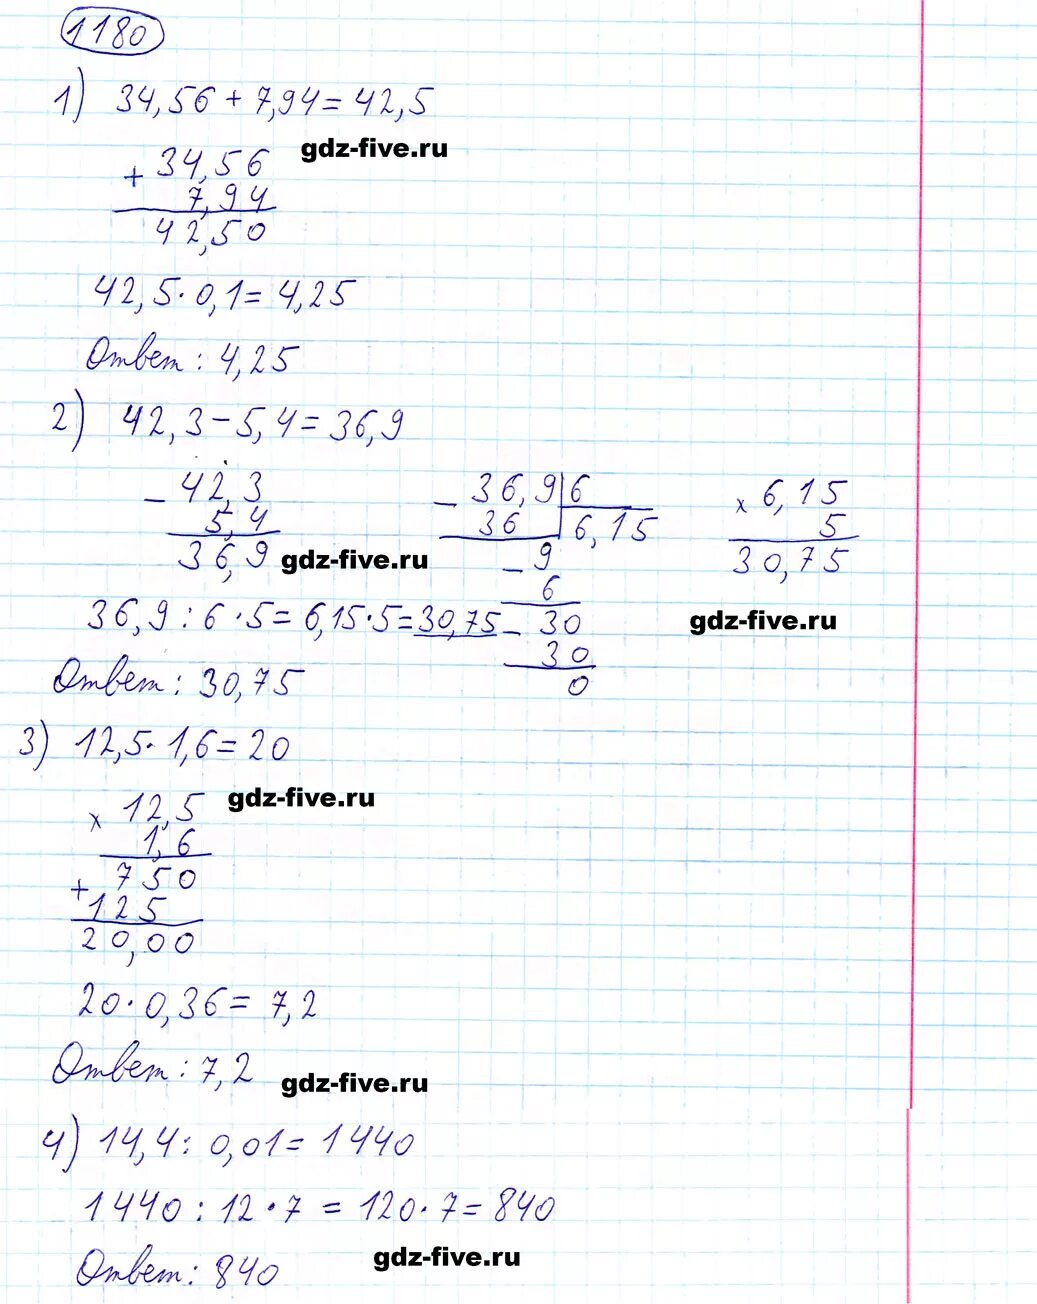 1180
1) 34,56 + 7,94 = 42,5
gdz-five.ru
+ 34,56
7,94
42,50
42,5 · 0,1 = 4,25
Ответ: 4,25
2) 42,3 - 5,4 = 36,9
- 42,3
5,4
36,9
gdz-five.ru
- 36,9 | 6
36 | 6,15
- 9
6
- 30
30
0
x 6,15
5
30,75
gdz-five.ru
36,9 : 6 · 5 = 6,15 · 5 = 30,75
Ответ: 30,75
3) 12,5 · 1,6 = 20
gdz-five.ru
x 12,5
1,6
+ 750
125
20,00
20 · 0,36 = 7,2
Ответ: 7,2
gdz-five.ru
4) 14,4 : 0,01 = 1440
1440 : 12 · 7 = 120 · 7 = 840
Ответ: 840
gdz-five.ru